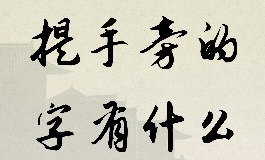 提手旁的
字有什么